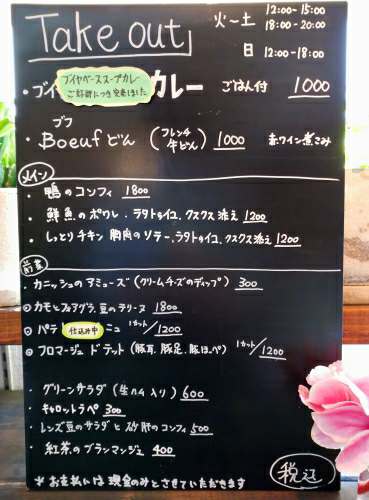 Take out
火〜土 12:00-15:00
18:00-20:00
日 12:00-18:00
・ブイ カレー ごはん付 1000
ブイヤベーススープカレー
ご好評につき完売しました
ブフ
・Boeufどん (フレンチ牛どん) 1000 赤ワイン煮こみ
メイン
・鴨のコンフィ 1800
・鮮魚のポワレ.ラタトゥイユ、クスクス添え 1200
・しっとりチキン 胸肉のソテー.ラタトゥイユ、クスクス添え 1200
前菜
・カニッシュのアミューズ(クリームチーズのディップ) 300
◎カモとフォアグラ、豆のテリーヌ 1800
◎パテ 仕込み中 ニュ 1カット/1200
◎フロマージュ ド テット(豚耳、豚足、豚ほへ゜) 1カット/1200
・グリーンサラダ(生ハム入り) 600
・キャロットラペ 300
・レンズ豆のサラダと砂肝のコンフィ 500
・紅茶のブランマンジェ 400
税込
*お支払いは現金のみとさせていただきます